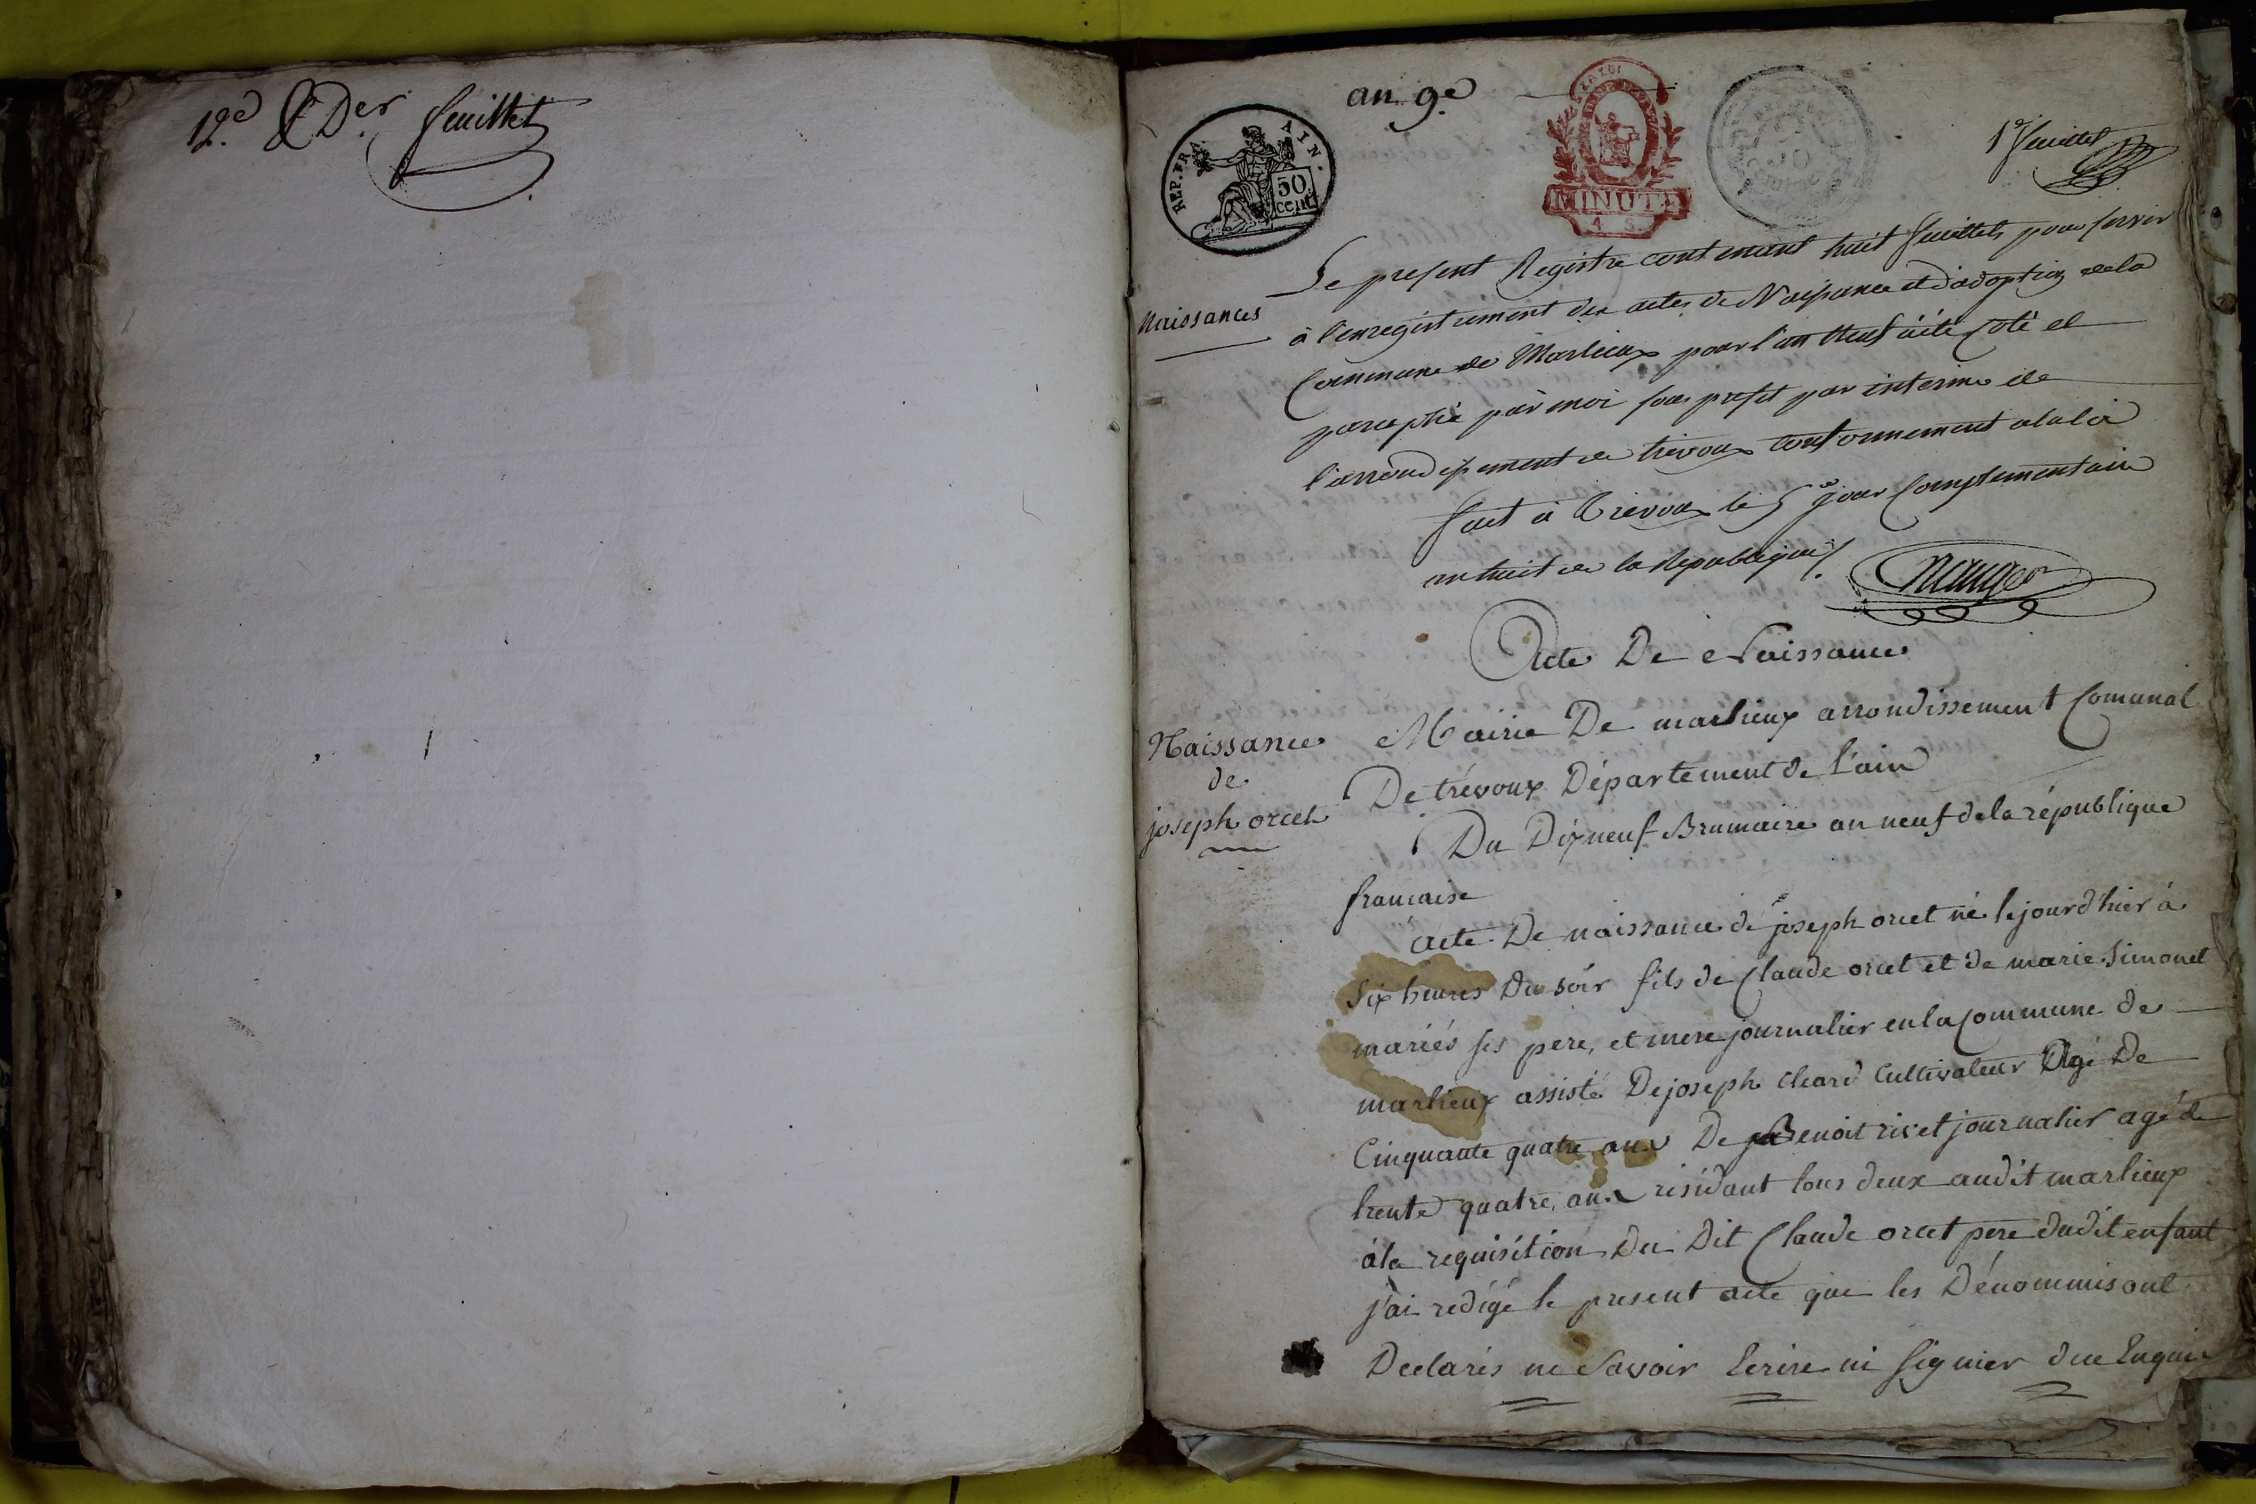 12.e & Der. feuillet
an 9e
REP. FRA. AIN.
50 cent.
MINUTE
1er feuillet
Naissances
Le present Registre contenant huit feuillets pour servir
à l'enregistrement des actes de Naissance et d'adoption de la
Commune de Marlieux pour l'an neuf a été coté et
paraphé par moi sous prefet par interim de
l'arrondissement de trevoux conformement a la loi
fait à Trevoux le 5e jour Complementaire
an huit de la Republique
Mauger
Acte De Naissance
Naissance
de
joseph orcet
Mairie De marlieux arrondissement Comunal
De trévoux Département de l'ain
Du Dix neuf Brumaire an neuf de la république
francaise
acte De naissance de joseph orcet né le jourd'hier à
six heures Du soir fils de Claude orcet et de marie Simonet
mariés ses pere, et mere journalier en la Commune de
marlieux assisté De joseph cheard Cultivateur Agé De
Cinquante quatre ans De Benoit rivet journalier agé de
trente quatre, ans résidant tous deux audit marlieux
à la requisition Du Dit Claude orcet pere dudit enfant
j'ai redigé le present acte que les Dénommés ont
Declarés ne Savoir Ecrire ni signier due Enquis